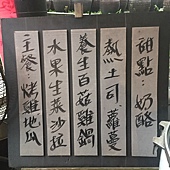 甜點:奶酪
熱土司 蘿蔓
養生百菇雞鍋
水果生菜沙拉
主餐:烤雞地瓜